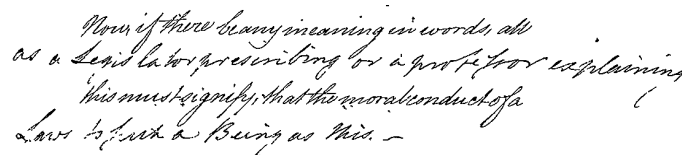 Now if there be any meaning in words, all
as a Legislator prescribing or a professor explaining
this must signify, that the moral conduct of a
Laws to such a Being as this. –